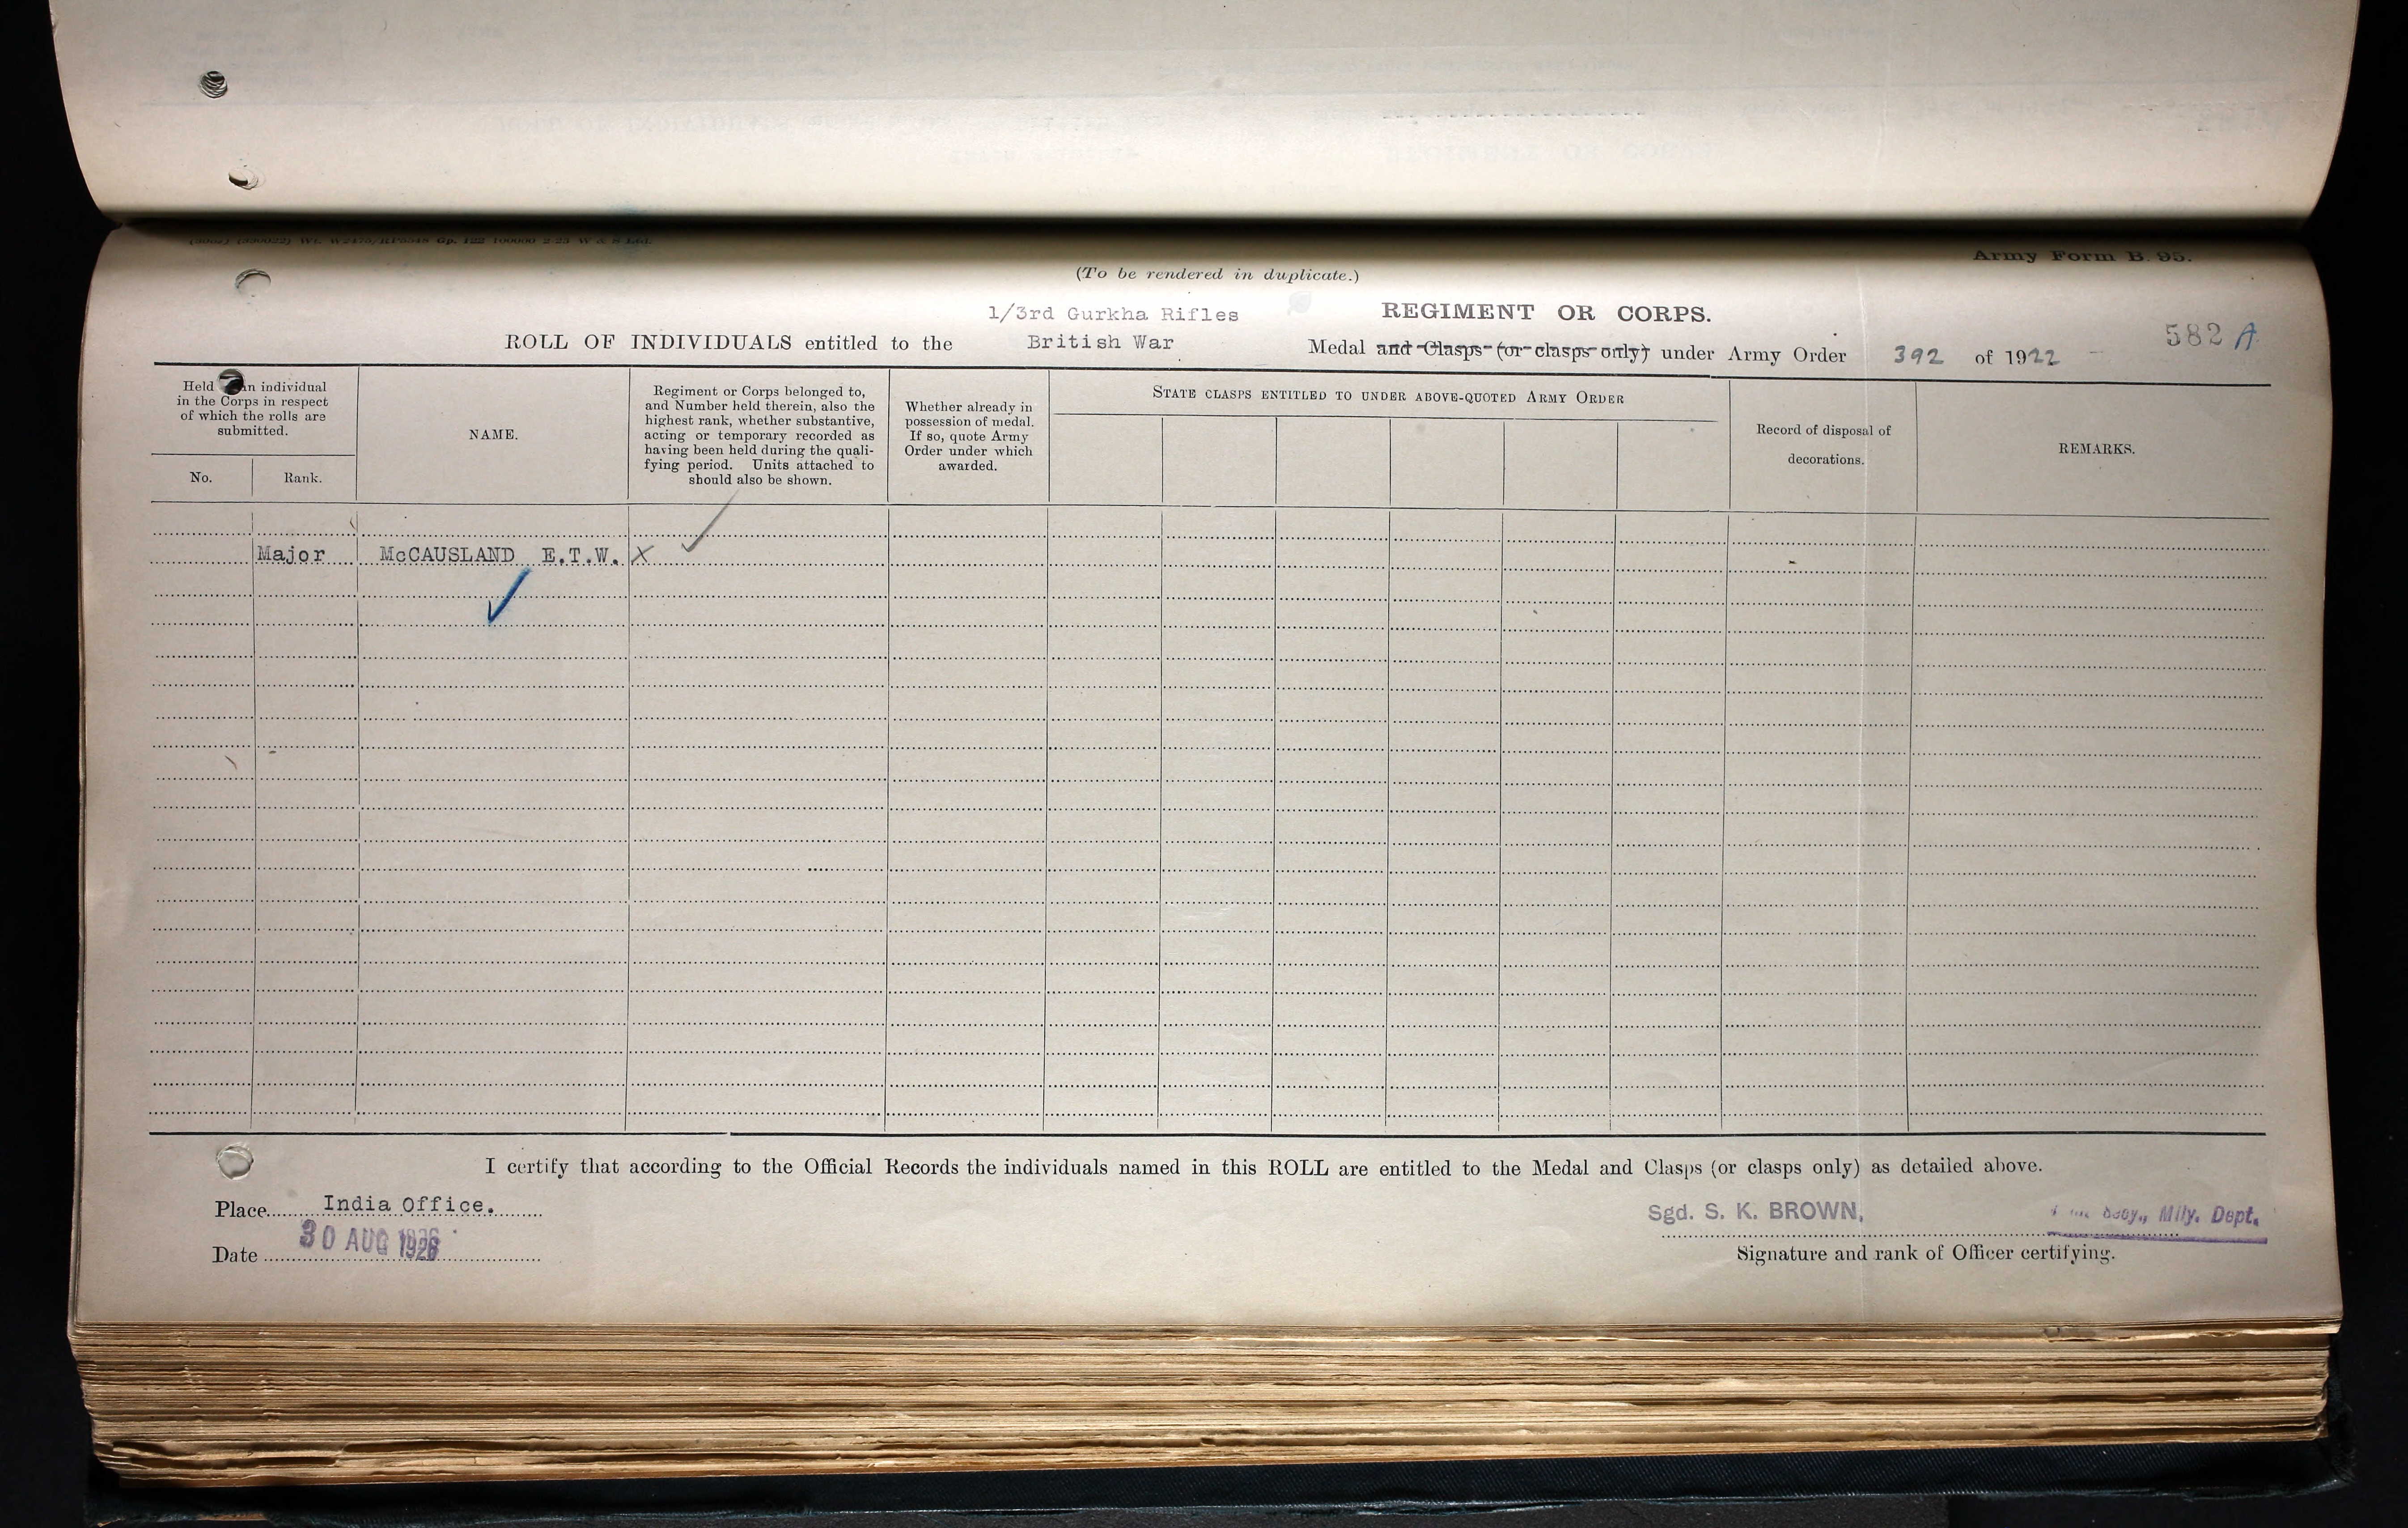 Army Form B. 95.
(To be rendered in duplicate.)
1/3rd Gurkha Rifles REGIMENT OR CORPS.
ROLL OF INDIVIDUALS entitled to the British War Medal and Clasps (or clasps only) under Army Order 392 of 1922
582 A
Held in individual
in the Corps in respect
of which the rolls are
submitted.
No.
Rank.
NAME.
Regiment or Corps belonged to,
and Number held therein, also the
highest rank, whether substantive,
acting or temporary recorded as
having been held during the quali-
fying period. Units attached to
should also be shown.
Whether already in
possession of medal.
If so, quote Army
Order under which
awarded.
STATE CLASPS ENTITLED TO UNDER ABOVE-QUOTED ARMY ORDER
Record of disposal of
decorations.
REMARKS.
Major McCAUSLAND E.T.W. X
I certify that according to the Official Records the individuals named in this ROLL are entitled to the Medal and Clasps (or clasps only) as detailed above.
Place India Office.
Date 30 AUG 1926
Sgd. S. K. BROWN, Mily. Dept.
Signature and rank of Officer certifying.